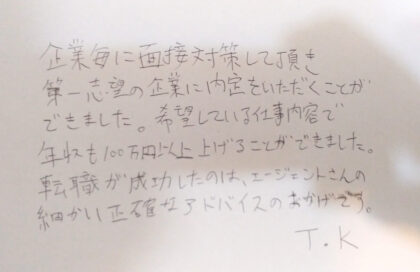 企業毎に面接対策して頂き
第一志望の企業に内定をいただくことが
できました。希望している仕事内容で
年収も100万円以上上げることができました。
転職が成功したのは、エージェントさんの
細かい正確なアドバイスのおかげです。
T.K